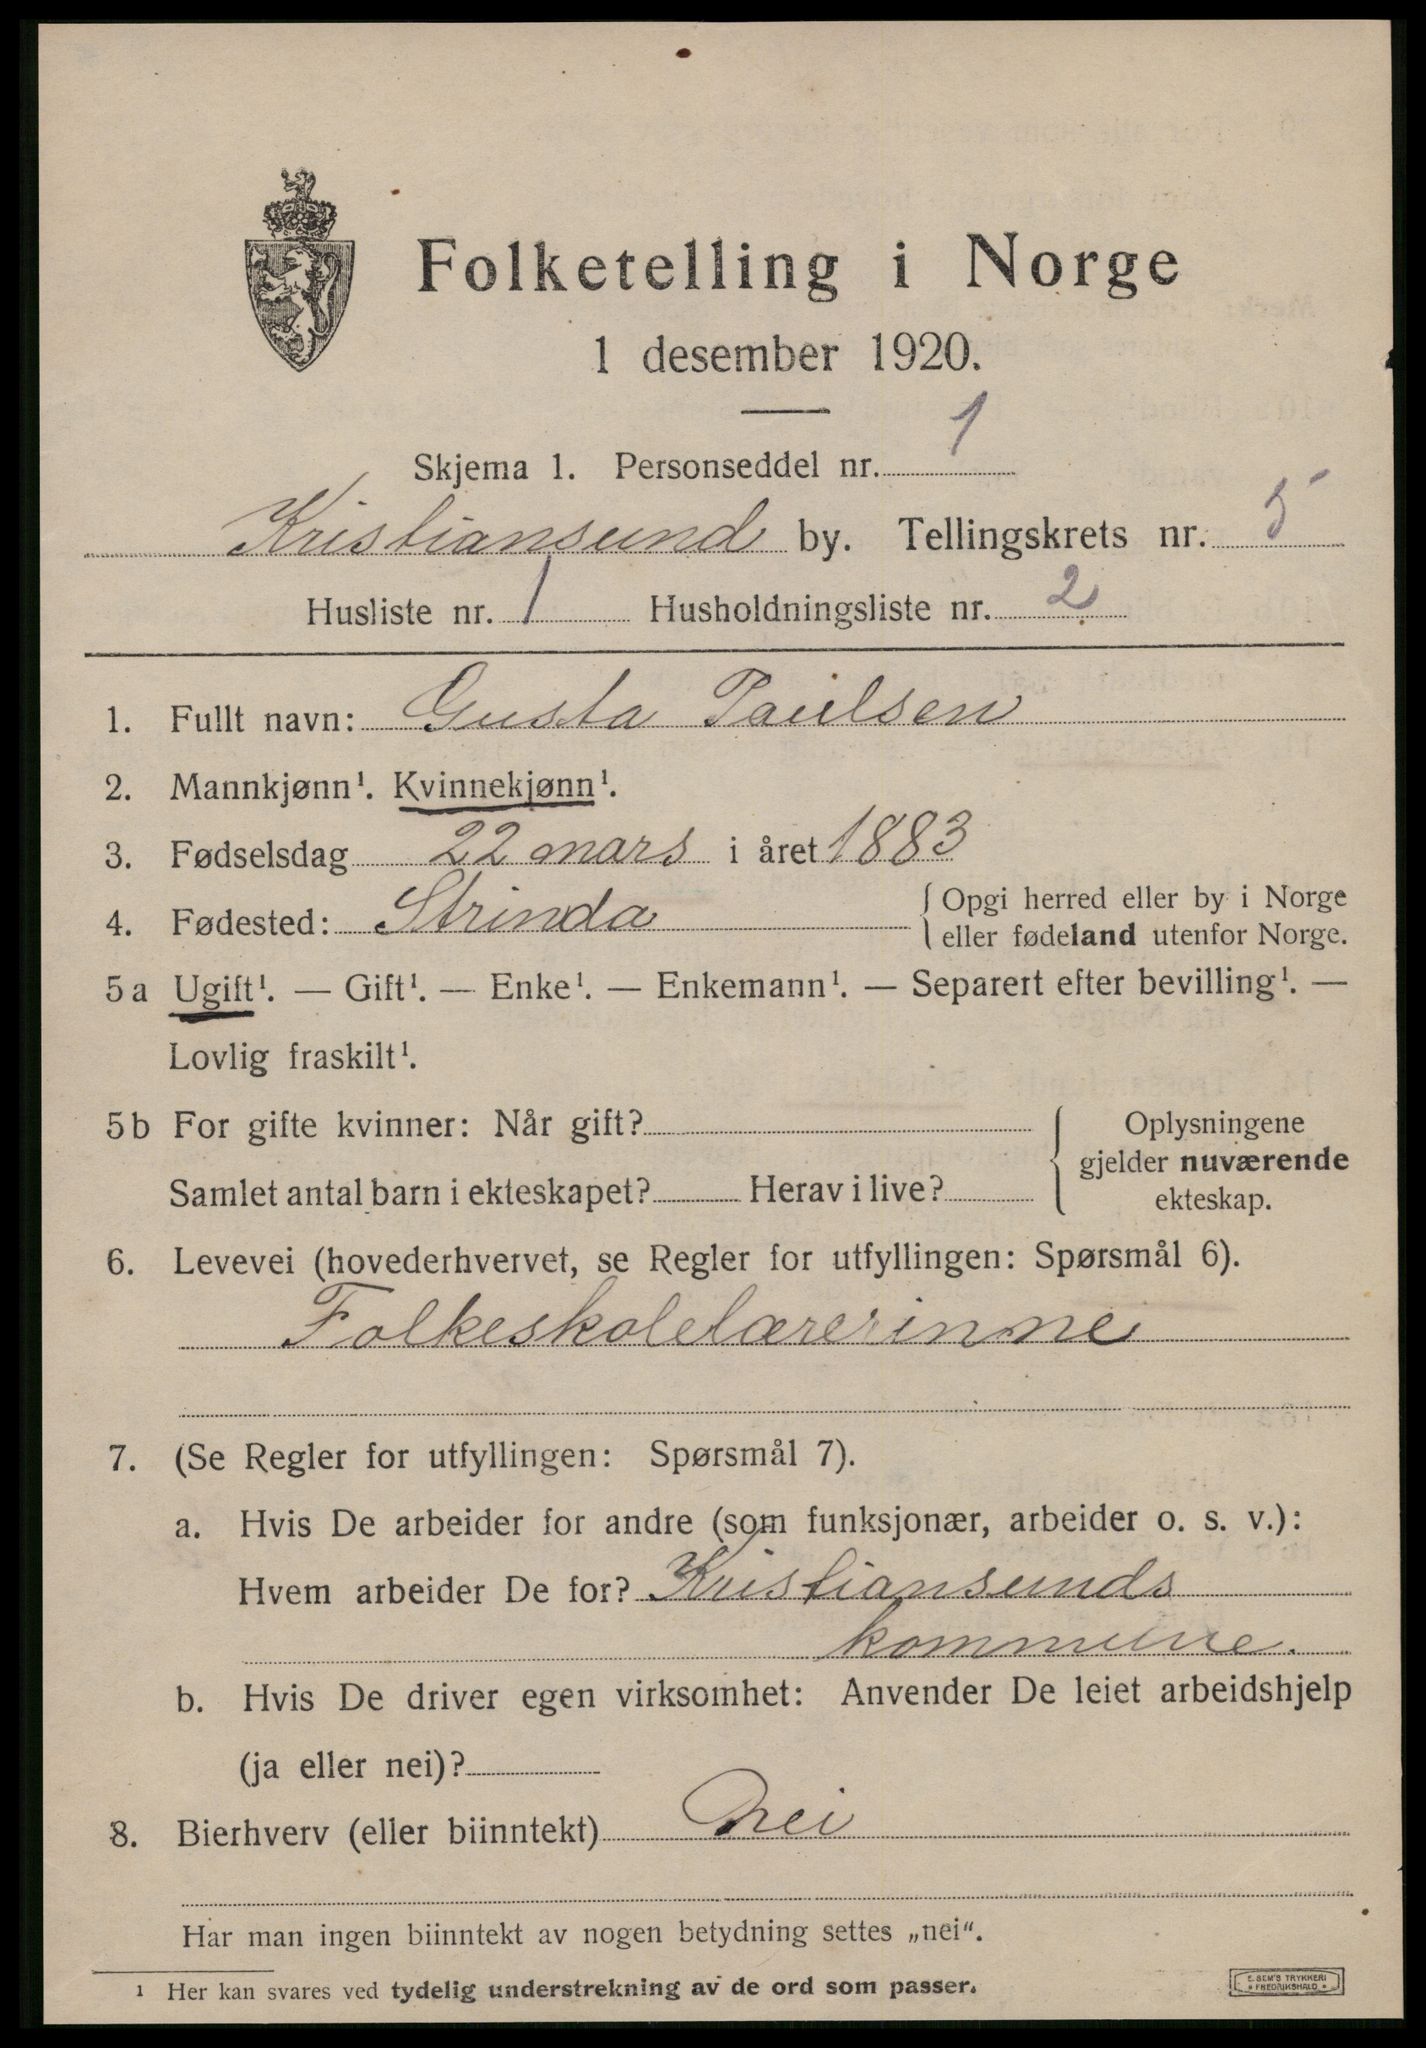 Folketelling i Norge
1 desember 1920.
Skjema 1. Personseddel nr. 1
Kristiansund by. Tellingskrets nr. 5
Husliste nr. 1 Husholdningsliste nr. 2
1. Fullt navn: Gusta Paulsen
2. Mannkjønn¹. Kvinnekjønn¹.
3. Fødselsdag 22 mars i året 1883
4. Fødested: Strinda { Opgi herred eller by i Norge
eller fødeland utenfor Norge.
5a Ugift¹. — Gift¹. — Enke¹. — Enkemann¹. — Separert efter bevilling¹. —
Lovlig fraskilt¹.
5b For gifte kvinner: Når gift? { Oplysningene
gjelder nuværende
Samlet antal barn i ekteskapet? Herav i live? ekteskap.
6. Levevei (hovederhvervet, se Regler for utfyllingen: Spørsmål 6).
Folkeskolelærerinne
7. (Se Regler for utfyllingen: Spørsmål 7).
a. Hvis De arbeider for andre (som funksjonær, arbeider o. s. v.):
Hvem arbeider De for? Kristiansunds
kommune.
b. Hvis De driver egen virksomhet: Anvender De leiet arbeidshjelp
(ja eller nei)?
8. Bierhverv (eller biinntekt) Nei
Har man ingen biinntekt av nogen betydning settes „nei“.
¹ Her kan svares ved tydelig understrekning av de ord som passer.
E. SEM'S TRYKKERI
* FREDRIKSHALD *